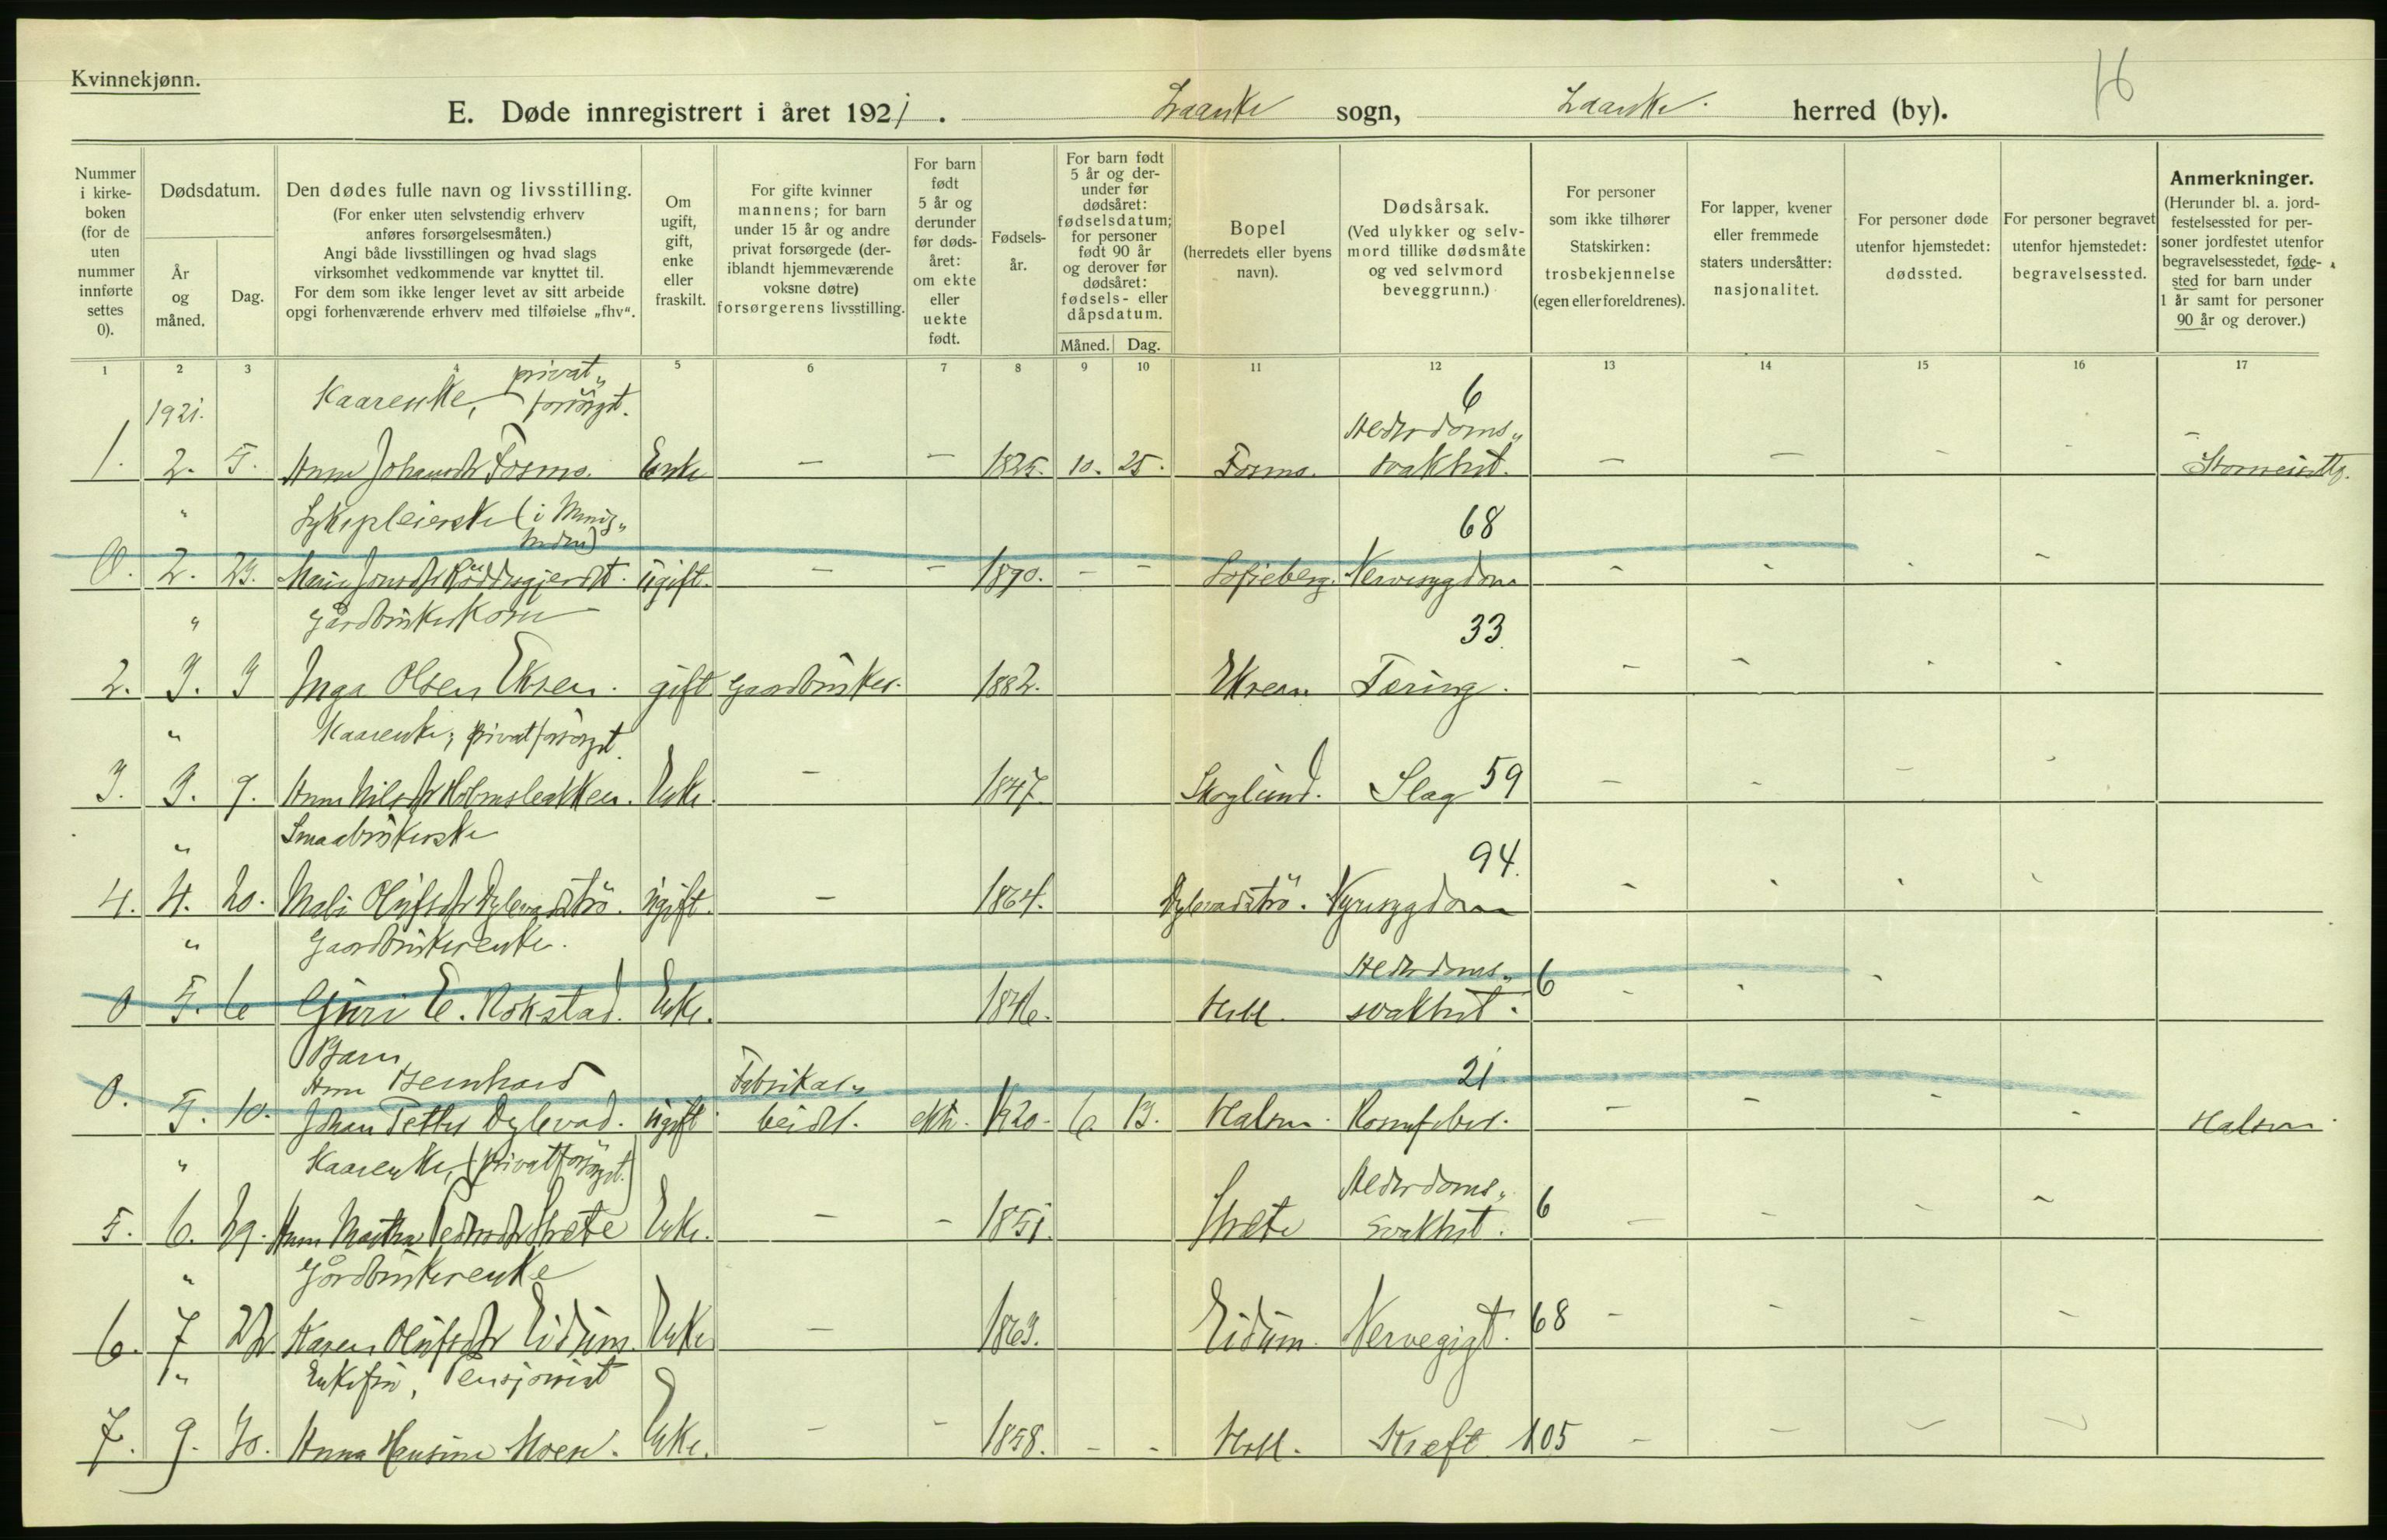 Kvinnekjønn.
E. Døde innregistrert i året 1921. Laanke sogn, Laanke herred (by).
16
Nummer i kirkeboken (for de uten nummer innførte settes 0).
Dødsdatum.
År og måned.
Dag.
Den dødes fulle navn og livsstilling.
(For enker uten selvstendig erhverv
anføres forsørgelsesmåten.)
Angi både livsstillingen og hvad slags
virksomhet vedkommende var knyttet til.
For dem som ikke lenger levet av sitt arbeide
opgi forhenværende erhverv med tilføielse „fhv“.
Om
ugift,
gift,
enke
eller
fraskilt.
For gifte kvinner
mannens; for barn
under 15 år og andre
privat forsørgede (der-
iblandt hjemmeværende
voksne døtre)
forsørgerens livsstilling.
For barn
født
5 år og
derunder
før døds-
året:
om ekte
eller
uekte
født.
Fødsels-
år.
For barn født
5 år og der-
under før
dødsåret:
fødselsdatum;
for personer
født 90 år
og derover før
dødsåret:
fødsels- eller
dåpsdatum.
Måned. Dag.
Bopel
(herredets eller byens
navn).
Dødsårsak.
(Ved ulykker og selv-
mord tillike dødsmåte
og ved selvmord
beveggrunn.)
For personer
som ikke tilhører
Statskirken:
trosbekjennelse
(egen eller foreldrenes).
For lapper, kvener
eller fremmede
staters undersåtter:
nasjonalitet.
For personer døde
utenfor hjemstedet:
dødssted.
For personer begravet
utenfor hjemstedet:
begravelsessted.
Anmerkninger.
(Herunder bl. a. jord-
festelsessted for per-
soner jordfestet utenfor
begravelsesstedet, føde-
sted for barn under
1 år samt for personer
90 år og derover.)
1 2 3 4 5 6 7 8 9 10 11 12 13 14 15 16 17
1921. Kaarenke, privat„ forsörgt. 6 Alderdoms„
1. 2. 5. Anne Johansdtr Fosmo. Enke — — 1825. 10. 25. Fosmo. svakhet. — — - -
" Sykepleierske (i 68
0. 2. 23. Marie Jonsdtr ugift. — - 1890. - - Sofieberg. Nervesygdom - - - -
" Gårdbrukerkone 33
2. 3. 3 Inga Olsen Eksen. gift Gaardbruker. 1882. Ekren Tæring. - - - -
" Kaarenke, privat forsörgt.
3. 3. 9. Anne Nilsdtr Holmsleakken. Enke. — 1847. Skoglund. Slag 59 - - - -
" Smaabrukerske 94.
4. 4. 20. Mali Olufsdtr Dylevadströ. ugift. — 1864. Dylevadströ. Nyresygdom - - - -
" Gaardbrukerenke. Alderdoms„ 6
0 5. 6 Guri E. Rokstad. Enke. 1846. Hell. svakhet. - - -
Barn
Anne Bernhard Fabrikar„ 21
0. 5. 10. Johan Petter Dylevad. ugift beider. ekte. 1920. 6. 13. Halsen. Rosenfeber. - - - - Halsen.
" Kaarenke, (privat forsörgt.) Alderdoms„
5. 6. 29. Anne Martha Pedersdtr Stræte Enke. — - 1851. Stræte svakhet. 6 - - - -
" Gårdbrukerenke
6. 7 22. Karen Olufsdtr Eidum. Enke — 1863. Eidum. Nervegigt. 68 - - - -
" Enkefru, Pensjonist
7. 9. 30. Anna Hansine Moen. Enke. — - 1858. - - Hell. Kræft 105 - - - -